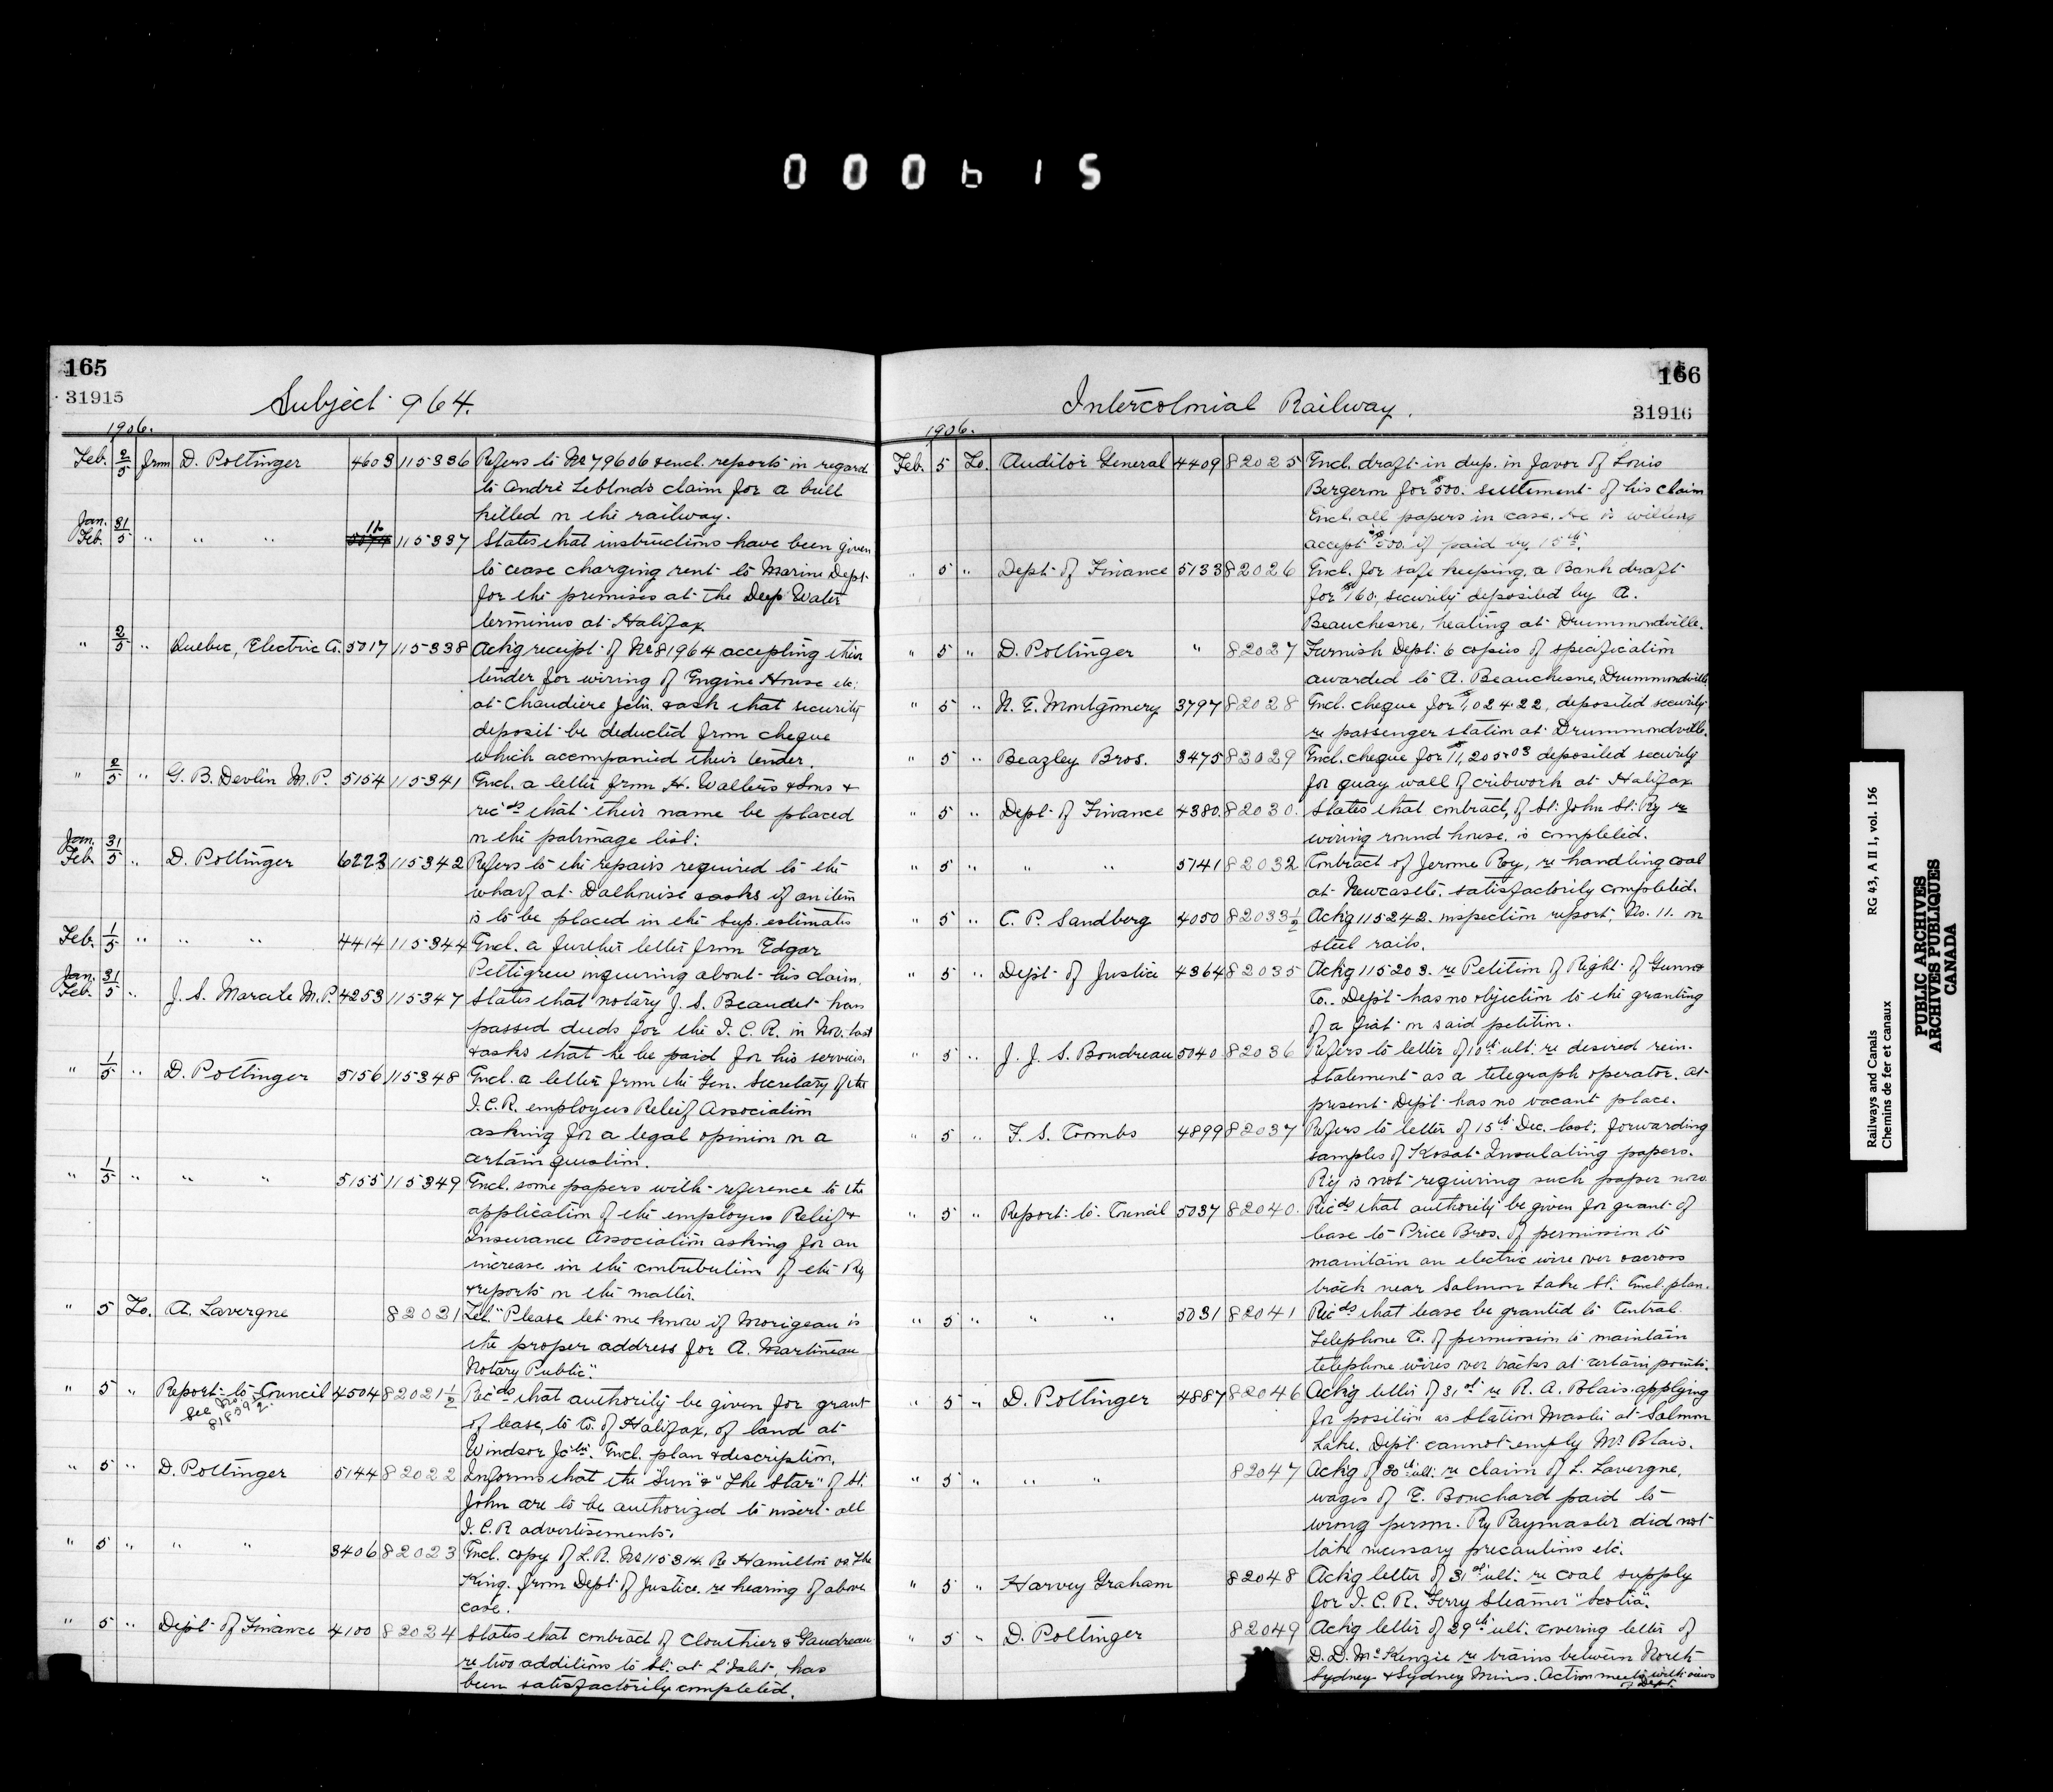 000615
165
31915
Subject 964.
1906.
Feb. 2/5 from D. Pottinger 4603 115336 Refers to No 79606 & encl. reports in regard
to André Leblonds claim for a bull
killed on the railway.
Jan. 31
Feb. 5 " " " 11 115337 States that instructions have been given
to cease charging rent to Marine Dept.
for the premises at the Deep Water
terminus at Halifax
" 2/5 " Quebec, Electric Co. 5017 115338 Ackg receipt of No 81964 accepting their
tender for wiring of Engine House etc.
at Chaudiere Jctn. & ask that security
deposit be deducted from cheque
which accompanied their tender.
" 2/5 " G. B. Devlin M.P. 5154 115341 Encl. a letter from H. Walters & Sons &
recds that their name be placed
on the patronage list.
Jan. 31
Feb. 5 " D. Pottinger 6223 115342 Refers to the repairs required to the
wharf at Dalhousie & asks if an item
is to be placed in the Sup. estimates
Feb. 1/5 " " " 4414 115344 Encl. a further letter from Edgar
Pettigrew inquiring about his claim.
Jan. 31
Feb. 5 " J. S. Marcile M.P. 4253 115347 States that notary J. S. Beaudet has
passed deeds for the I.C.R. in Nov. last
& asks that he be paid for his services.
" 1/5 " D. Pottinger 5156 115348 Encl. a letter from the Gen. Secretary of the
I.C.R. employees Releif Association
asking for a legal opinion on a
certain question.
" 1/5 " " " 5155 115349 Encl. some papers with reference to the
application of the employees Relief &
Insurance Association asking for an
increase in the contribution of the Ry
& reports on the matter.
" 5 To. A. Lavergne 82021 Tel. "Please let me know if Morigeau is
the proper address for A. Martineau
Notary Public".
" 5 " Report to Council 4504 82021½ Recds that authority be given for grant
See No
of lease, to Co. of Halifax, of land at
Windsor Jctn. Encl. plan & description,
" 5 " D. Pottinger 5144 82022 Informs that the "Sun" & "The Star" of St.
John are to be authorized to insert all
I.C.R advertisements.
" 5 " " " 3406 82023 Encl. copy of L.R. No 115314. Re Hamilton vs. The
King. from Dept. of Justice. re hearing of above
case.
" 5 " Dept. of Finance 4100 82024 States that contract of Clouthier & Gaudreau
re two additions to St. at L'Islet, has
been satisfactorily completed.
166
31916
Intercolonial Railway.
1906.
Feb. 5 To. Auditor General 4409 82025 Encl. draft in dup. in favor of Louis
Bergeron for $500. settlement of his claim
Encl. all papers in case. He is willing
accept $500. if paid by 15th.
" 5 " Dept. of Finance 5133 82026 Encl. for safe keeping, a Bank draft
for $160., security deposited by A.
Beauchesne, heating at Drummondville.
" 5 " D. Pottinger " 82027 Furnish Dept. 6 copies of specification
awarded to A. Beauchesne, Drummondville
" 5 " N. E. Montgomery 3797 82028 Encl. cheque for $1,024.22, deposited security
re passenger station at Drummondville.
" 5 " Beazley Bros. 3475 82029 Encl. cheque for $11,205.03 deposited security
for quay wall of cribwork at Halifax
" 5 " Dept. of Finance 4380 82030. States that contract, of St. John St. Ry re
wiring round house, is completed.
" 5 " " " 5141 82032 Contract of Jerome Roy, re handling coal
at Newcastle. satisfactorily completed.
" 5 " C. P. Sandberg 4050 82033½ Ackg 115242. inspection report, No. 11. on
steel rails.
" 5 " Dept. of Justice 4364 82035 Ackg 115203. re Petition of Right of Gunn &
Co.. Dept. has no objection to the granting
of a fiat on said petition.
" 5 " J. J. S. Boudreau 5040 82036 Refers to letter of 10th ult. re desired rein-
statement as a telegraph operator. At
present Dept. has no vacant place.
" 5 " F. S. Tombs 4899 82037 Refers to letter of 15th Dec. last. forwarding
samples of Kosat Insulating papers.
Ry is not requiring such paper now.
" 5 " Report to Council 5037 82040. Recds that authority be given for grant of
lease to Price Bros. of permission to
maintain an electric wire over & across
track near Salmon Lake St. Encl. plan.
" 5 " " " 5031 82041 Recds that lease be granted to Central
Telephone Co. of permission to maintain
telephone wires over tracks at certain points.
" 5 " D. Pottinger 4887 82046 Ackg letter of 31st re R. A. Blais. applying
for position as Station Master at Salmon
Lake. Dept. cannot employ Mr Blais.
" 5 " " " 82047 Ackg of 30th ult. re claim of L. Lavergne,
wages of E. Bouchard paid to
wrong person. Ry Paymaster did not
take necessary precautions etc.
" 5 " Harvey Graham 82048 Ackg letter of 31st ult. re coal supply
for I.C.R. Ferry Steamer "Scotia".
" 5 " D. Pottinger 82049 Ackg letter of 29th ult. covering letter of
D. D. McKenzie re trains between North
Sydney & Sydney Mines. Action meets with views
of Dept.
Railways and Canals RG 43, A II 1, vol. 156
Chemins de fer et canaux
PUBLIC ARCHIVES
ARCHIVES PUBLIQUES
CANADA